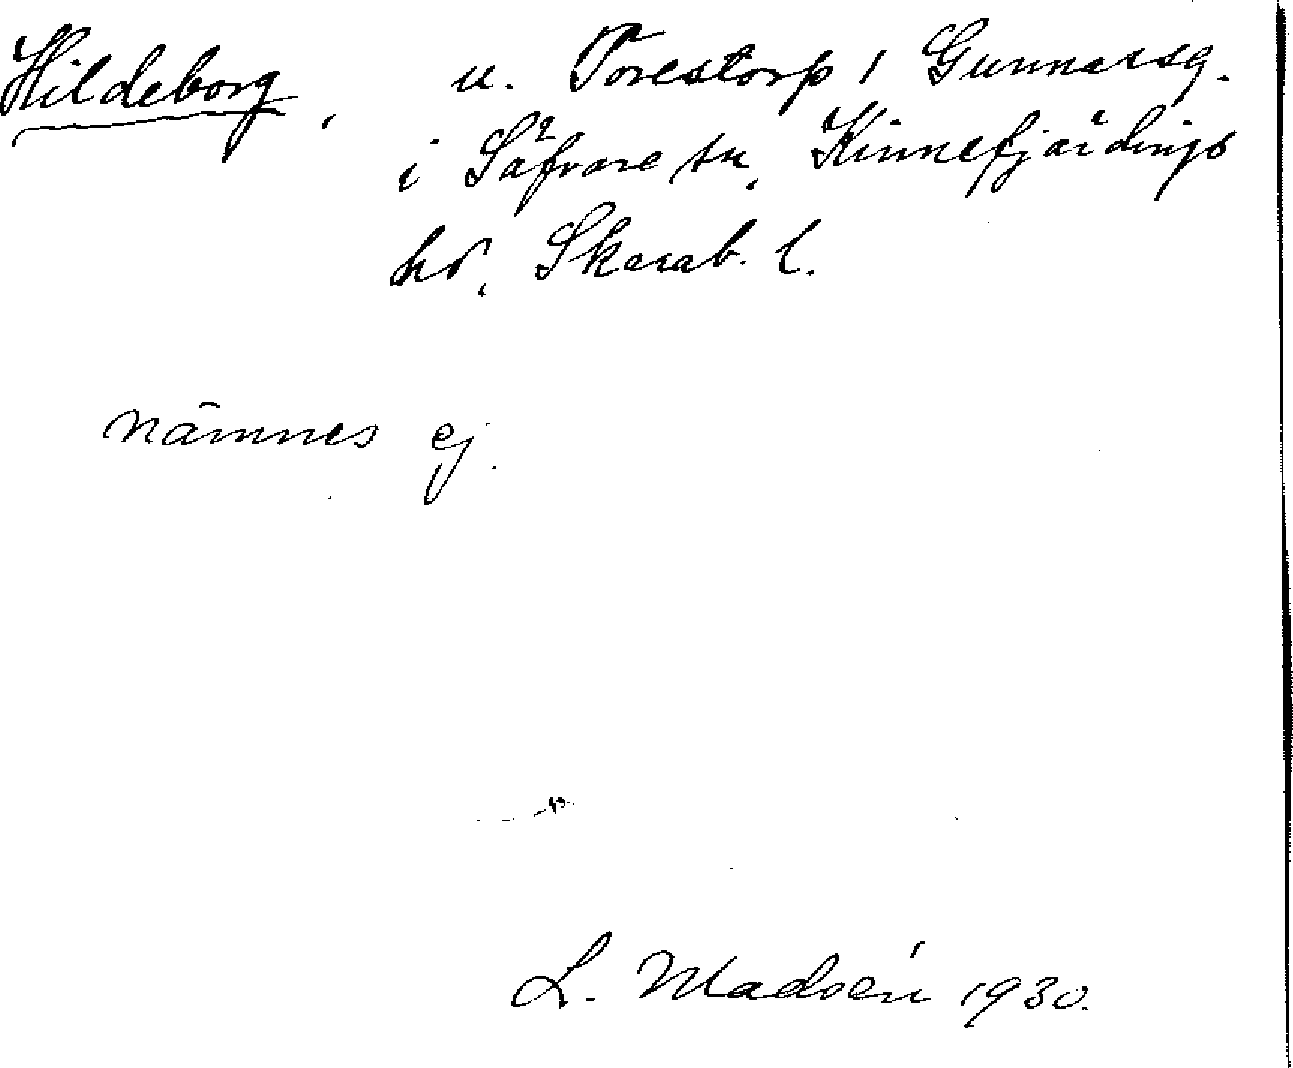 Hildeborg, u. Torestorp 1 Gunnarsg.
i Säfvare sn, Kinnefjärdings
hd, Skarab. l.
nämnes ej.
L. Madsén 1930.